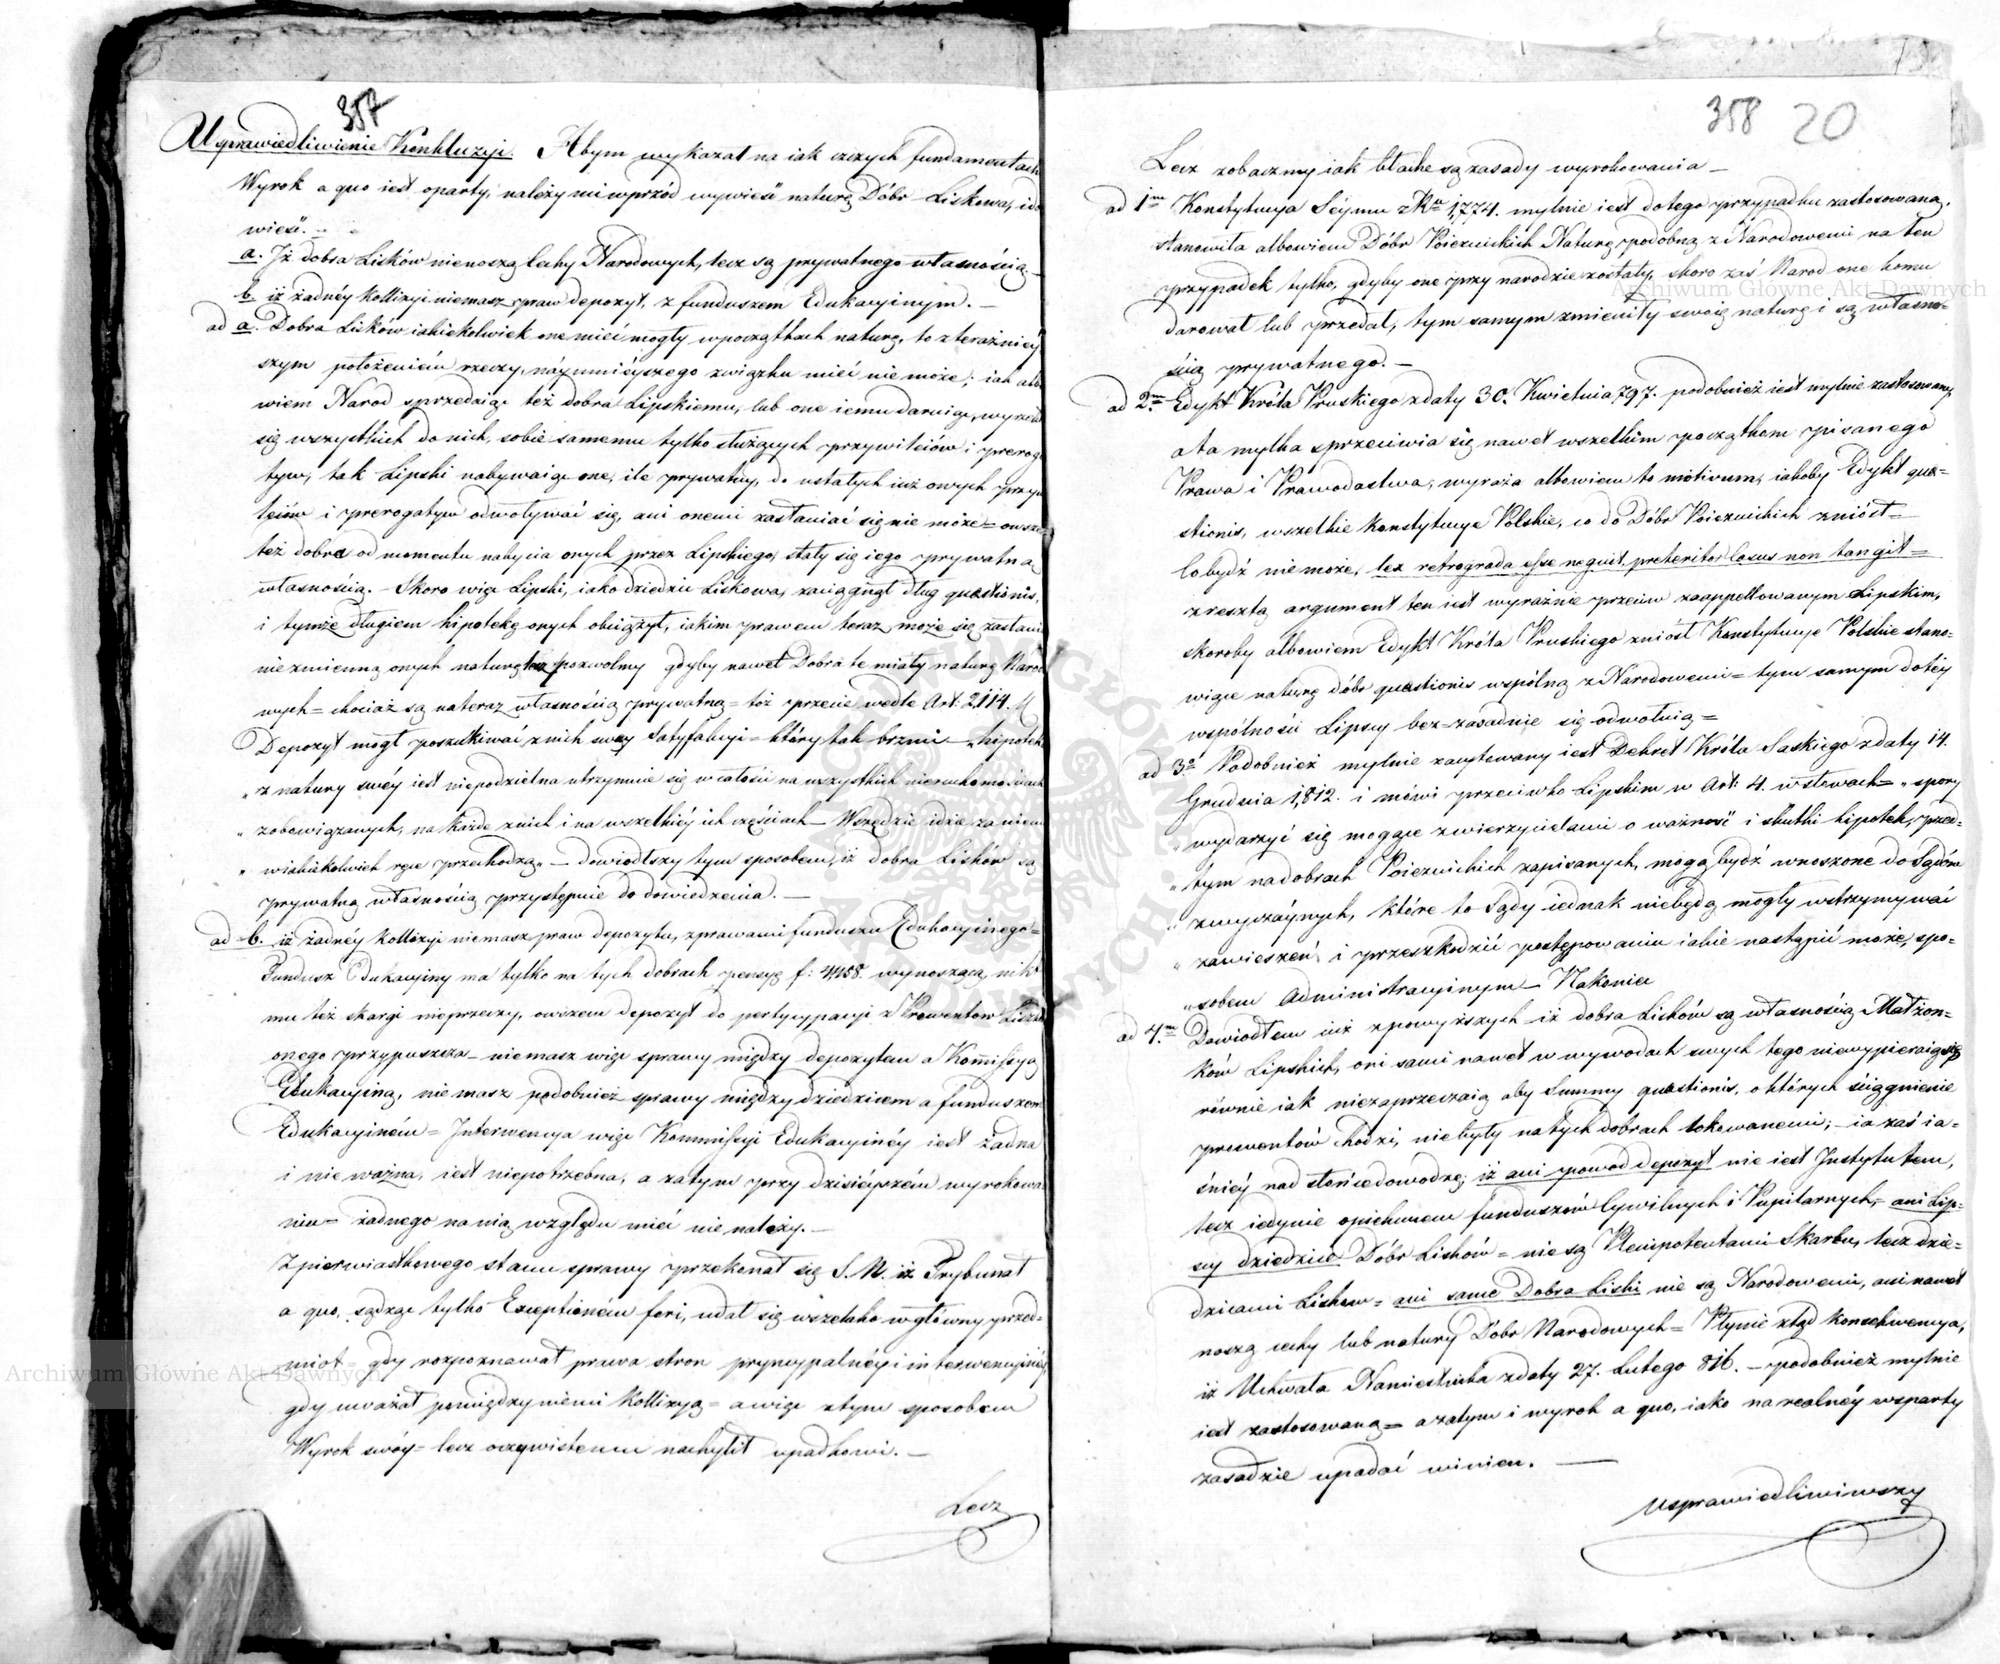 357
Usprawiedliwienie Konkluzyi. Abym wykazał na iak czczych fundamentach
Wyrok a quo iest oparty, należy mi wprzód wywieść naturę Dóbr Liskowa, i do
wieść.
a. Jż dobra Lisków nienoszą Cechy Narodowych, lecz są prywatnego własnością
b. iż żadnéy Kollizyi niemasz praw depozyt. z funduszem Edukacyinym. —
ad a. Dobra Lisków iakiekolwiek one mieć mogły w początkach naturę, to z teraźnieÿ
szym położeniem rzeczy, náymnieyszego związku mieć nie może; iak albo
wiem Narod sprzedaiąc też dobra Lipskiemu, lub one iemu daruiąc, wyrzekł
się wszystkich do nich, sobie samemu tylko służących przywileiów i prerog
tyw, tak Lipski nabywaiąc one, ile prywatny, do ustałych iuż owych przyw
leiów i prerogatyw odwoływać się, ani onemi zasłaniać się nie może = owsze
też dobra od momentu nabycia onych przez Lipskiego, stały się iego prywatną
własnością. — Skoro więc Lipski, iako dziedzic Liskowa, zaciągnął dług quaestionis,
i tymże długiem hipotekę onych obciążył, iakim prawem teraz może się zasłani
niezmienną onych naturą pozwolmy gdyby nawet Dobra te miały naturę Naro
wych = chociaż są na teraz własnością prywatną = toż przecie wedle Art: 2,114.
Depozyt mógł poszukiwać z nich swey Satyfakcyi = który tak brzmi — „hipotek
„z natury swéy iest niepodzielna utrzymuie się w całości na wszystkich nieruchomościach
„zobowiązanych, na każdé z nich i na wszelkiéy ich częściach — Wszędzie idzie za niemi
„w iakiekolwiek ręce przechodzą„ — dowiódłszy tym sposobem, iż dobra Lisków są
prywatną własnością przystępuie do dowiedzenia. —
ad b. iż żadnéy Kollizyi niemasz praw depozytu, z prawami funduszu Edukacyinego =
Fundusz Edukacyiny ma tylko na tych dobrach pensyę f: 4,158. wynoszącą nikt
mu też skargi nieprzeczy, owszem depozyt do pertycypacyi z Prowentów Lisko
onego przypuszcza — niemasz więc sprawy między depozytem a Kommissyą
Edukacyiną, niemasz podobnież sprawy między dziedzicem a funduszem
Edukacyinem = Interwencya więc Kommissyi Edukacyinéy iest żadna
i nie ważna, iest niepotrzebna, a zatym przy dzisieyszém wyrokowa
niu = żadnego na nią względu mieć nie należy. —
Z pierwiastkowego stanu sprawy przekonał się S. A. iż Trybunał
a quo, sądząc tylko Exceptionem fori, udał się wszelako w główny przed=
miot = gdy rozpoznawał prawa stron pryncypalnéy i interweniuiącéy,
gdy uważał pomiędzy niemi Kollizyą = a więc z tym sposobem
Wyrok swóy = lecz oczywistemu nachylił upadkowi. —
Lecz
358 20
Lecz zobaczmy iak błache są zasady wyrokowania —
ad 1m Konstytucya Séymu z Ru 1,774. mylnie iest do tego przypadku zastosowaną,
stanowiła albowiem Dóbr Poiezuickich Naturę podobną z Narodowemi na ten
przypadek tylko, gdyby one przy narodzie zostały, skoro zaś Narod one komu
darował lub przedał, tym samym zmieniły swoię naturę i są własno=
ścią prywatnego. —
ad 2m Edykt Króla Pruskiego z daty 30. Kwietnia 797. podobnież iest mylnie zastosowany,
a ta myłka sprzeciwia się nawet wszelkim początkom pisanego
Prawa i Prawodastwa, wyraża albowiem to motivum, iakoby Edykt quae=
stionis, wszelkie Konstytucye Polskie, co do Dóbr Poiezuickich zniósł =
Co bydź nie może, lex retrograda esse nequit, preteritos Casus non tangit =
z resztą argument ten iest wyraźnie przeciw zaappellowanym Lipskim,
skoroby albowiem Edykt Króla Pruskiego zniósł Konstytucye Polskie stano=
wiące naturę dóbr quaestionis wspólną z Narodowemi = tym samym do téy
wspólności Lipscy bez-zasadnie się odwołuią =
ad 3o Podobnież mylnie zacytowany iest Dekret Króla Saskiego z daty 14.
Grudnia 1,812. i mówi przeciwko Lipskim w Art: 4. w słowach = „spory
„wydarzyć się mogące z wierzycielami o ważność i skutki hipotek, przed=
„tym na dobrach Poiezuickich zapisanych, mogą bydź wnoszone do Sądów
„zwyczaynych, które to Sądy iednak niebędą mogły wstrzymywać
„zawieszeń i przeszkodzić postępowaniu iakie nastąpić może, spo=
„sobem Administracyinym — Nakoniec
ad 4m Dowiodłem iuż z powyższych iż dobra Lisków są własnością Małżon=
ków Lipskich, oni sami nawet w wywodach swych tego niewypieraią się
równie iak niezaprzeczaią aby Summy quaestionis, o których ściągnienie
prowentów chodzi, nie były na tych dobrach lokowanemi; — ia zaś ia=
śniéy nad słońce dowodzę; iż ani powod depozyt nie iest Jnstytutem,
lecz iedynie opiekunem funduszów Cywilnych i Pupilarnych, = ani Lip=
scy dziedzice Dóbr Lisków = nie są Plenipotentami Skarbu, lecz dzie=
dzicami Liskow = ani same Dobra Liski nie są Narodowemi, ani nawet
noszą cechy lub natury Dobr Narodowych = Płynie ztąd Konsekwencya,
iż Uchwała Namiestnika z daty 27. Lutego 816. — podobnież mylnie
iest zastosowaną = a zatym i wyrok a quo, iako na realnéy wsparty
zasadzie upadać winien. —
Usprawiedliwiwszy
Archiwum Główne Akt Dawnych
Archiwum Główne Akt Dawnych